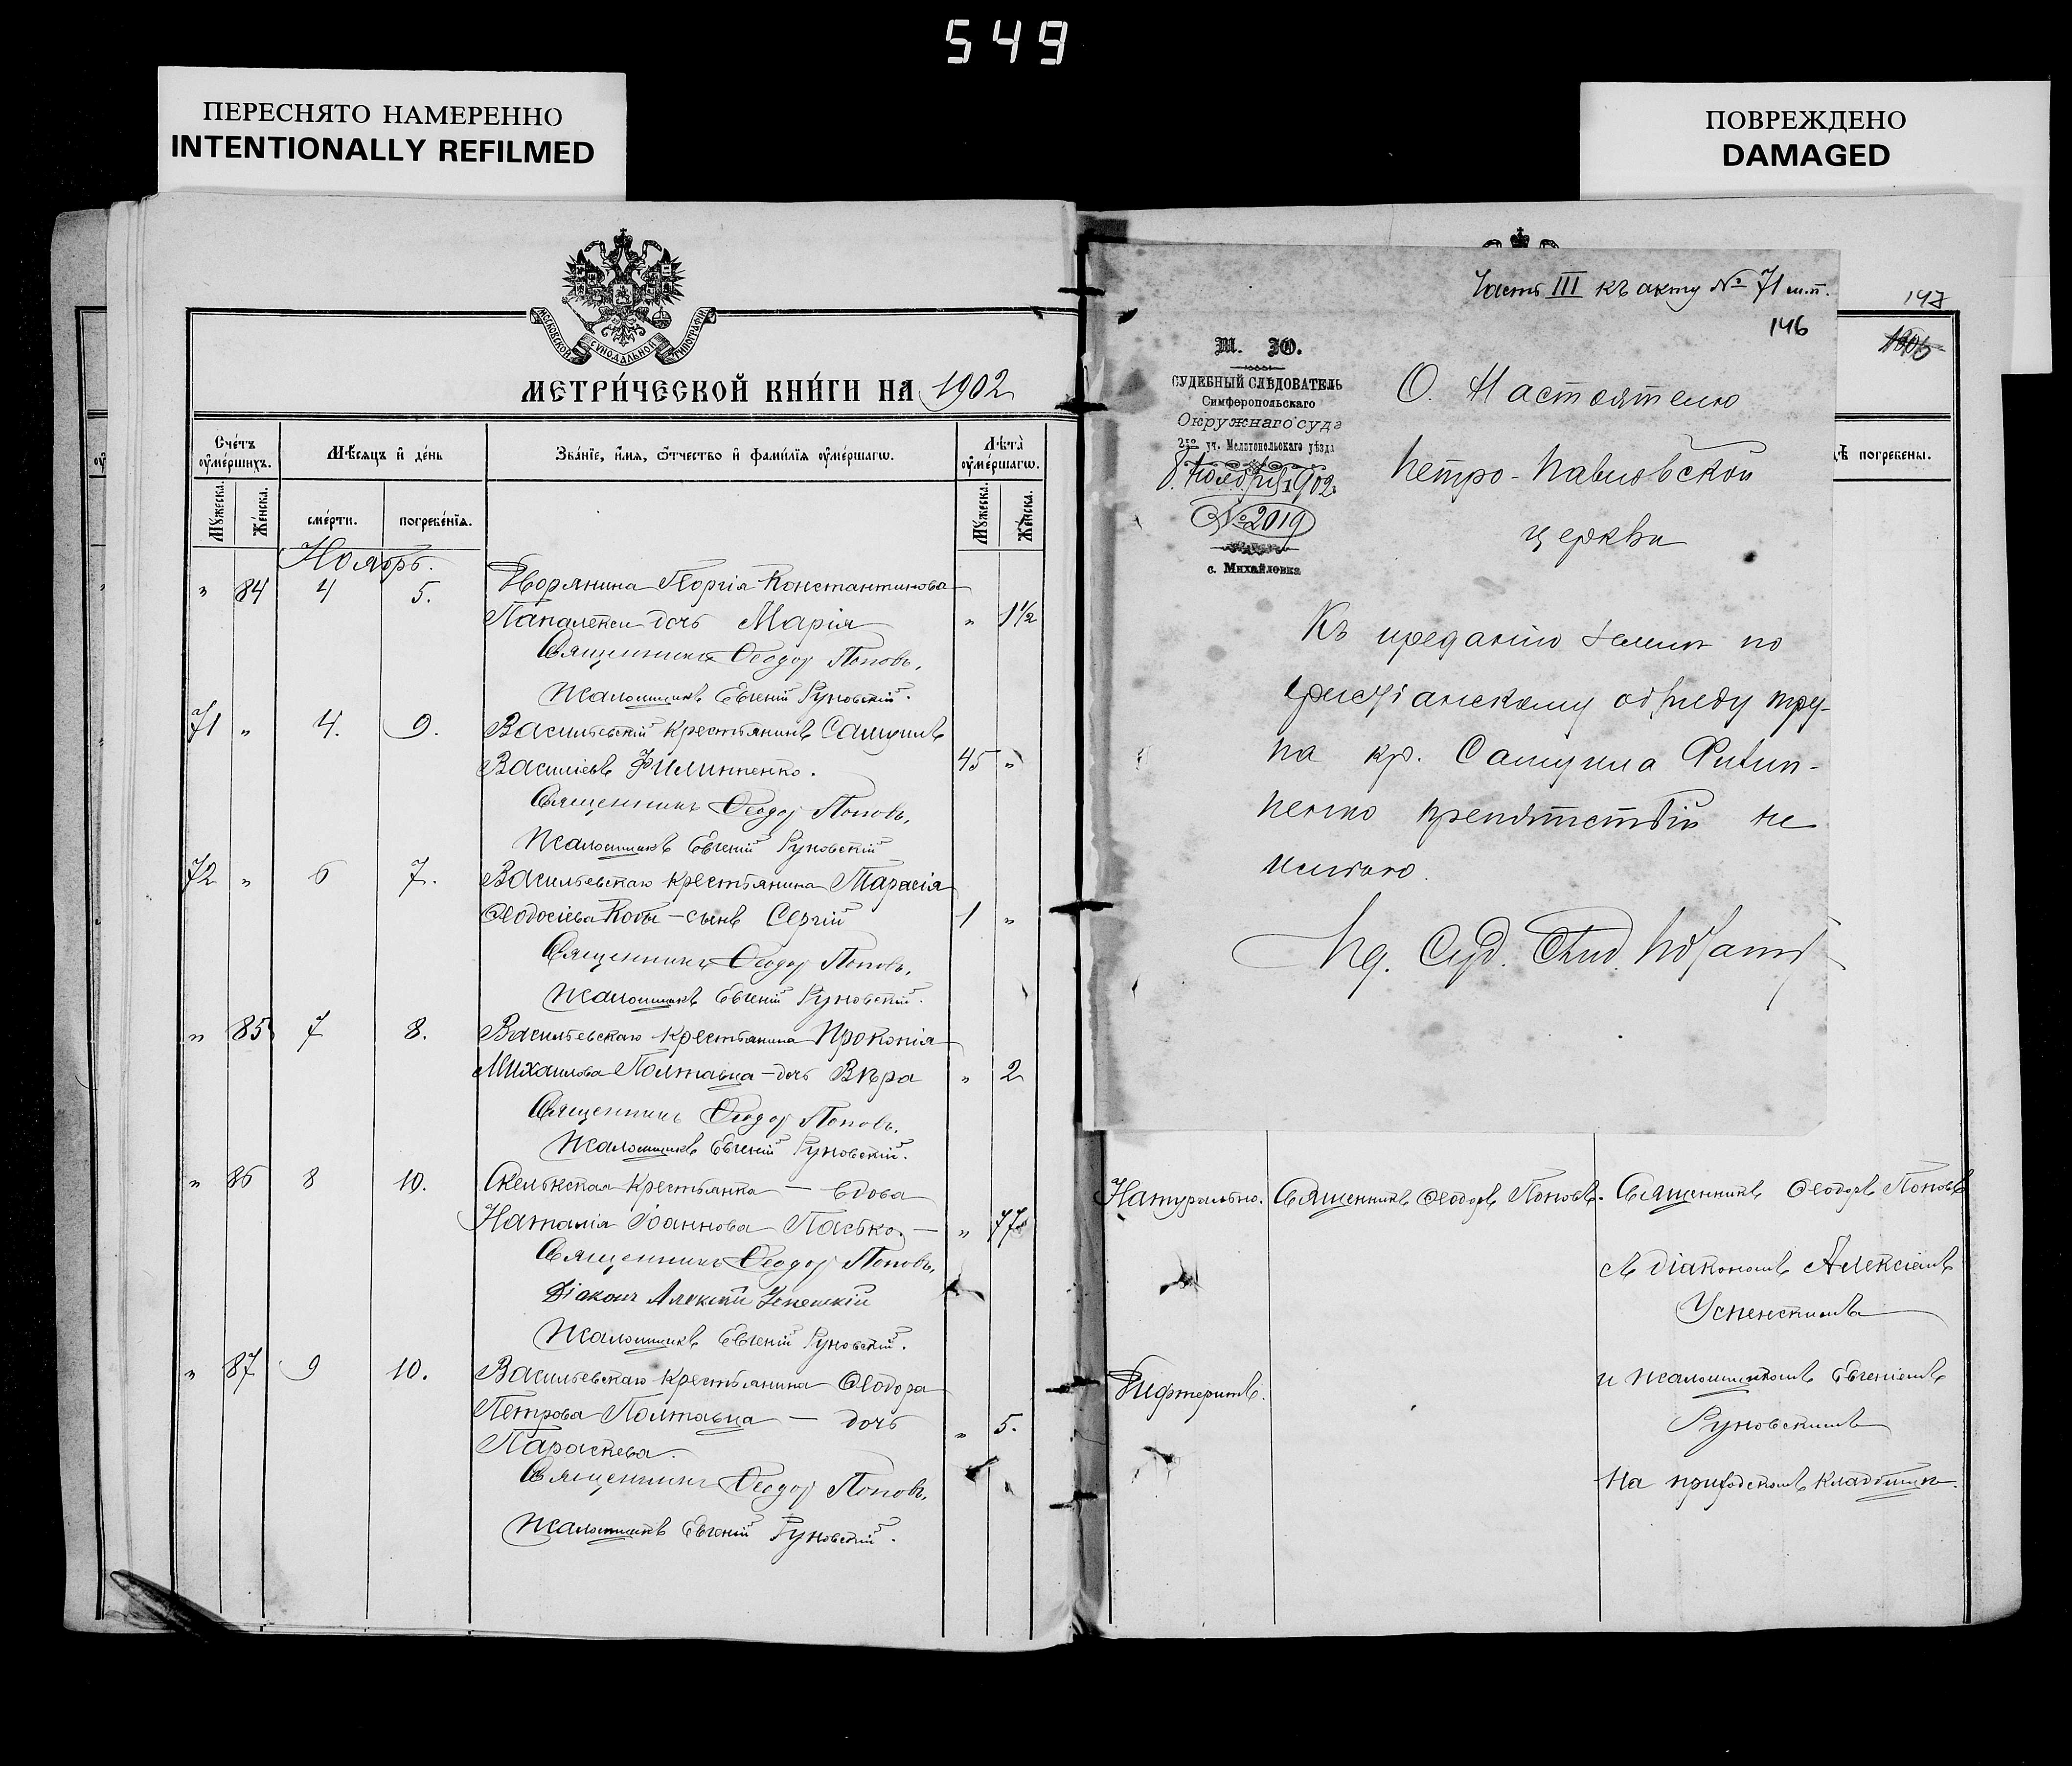 549
ПЕРЕСНЯТО НАМЕРЕННО
INTENTIONALLY REFILMED
ПОВРЕЖДЕНО
DAMAGED
МОСКОВСКОЙ СѴНОДАЛЬНОЙ ТИПОГРАФІИ
МЕТРИ́ЧЕСКОЙ КНИ́ГИ НА 1902
Сче́тъ оуме́ршихъ.
Мѣ́сяцъ и де́нь
Зва́нїе, и́мя, ѿ́тчество и фами́лїя оуме́ршагѡ.
Лѣта̀ оуме́ршагѡ.
Мꙋ́жеска.
Же́нска.
сме́рти.
погребе́нїя.
Мꙋ́жеска.
Же́нска.
Ноябрь.
" 84 4 5. Дворянина Георгія Константинова
Папалекси дочь Марія " 1½
Священникъ Ѳеодоръ Поповъ.
Псаломщикъ Евгеній Руновскій.
71 " 4. 9. Васильевскій крестьянинъ Самуилъ
Василіевъ Филипенко. 45 "
Священникъ Ѳеодоръ Поповъ.
Псаломщикъ Евгеній Руновскій
72 " 6 7. Васильевскаго крестьянина Тарасія
Ѳеодосіева Кобы - сынъ Сергій 1 "
Священникъ Ѳеодоръ Поповъ.
Псаломщикъ Евгеній Руновскій.
" 85 7 8. Васильевскаго крестьянина Прокопія
Михаилова Полтавца - дочь Вѣра " 2
Священникъ Ѳеодоръ Поповъ.
Псаломщикъ Евгеній Руновскій.
" 86 8 10. Скельская крестьянка - вдова
Наталія Іоаннова Пасько. - " 77
Священникъ Ѳеодоръ Поповъ.
Діаконъ Алексій Успенскій
Псаломщикъ Евгеній Руновскій.
" 87 9 10. Васильевскаго крестьянина Ѳеодора
Петрова Полтавца - дочь " 5.
Параскева.
Священникъ Ѳеодоръ Поповъ.
Псаломщикъ Евгеній Руновскій.
Часть III къ акту № 71 м.п.
146
147
М. Ю.
СУДЕБНЫЙ СЛѢДОВАТЕЛЬ
Симферопольскаго
Окружнаго суда
2го уч. Мелитопольскаго уѣзда
8 Ноября 1902
№ 2019
с. Михайловка
О. Настоятелю
Петро-Павловской
церкви
Къ преданію землѣ по
христіанскому обряду тру-
па кр. Самуила Филип-
пенко препятствій не
имѣю.
Суд. Слѣд.
дѣ погребены.
Натурально. Священникъ Ѳеодоръ Поповъ. Священникъ Ѳеодоръ Поповъ
съ діакономъ Алексіемъ
Успенскимъ
Дифтеритъ.
и псаломщикомъ Евгеніемъ
Руновскимъ
На приходскомъ кладбищѣ.